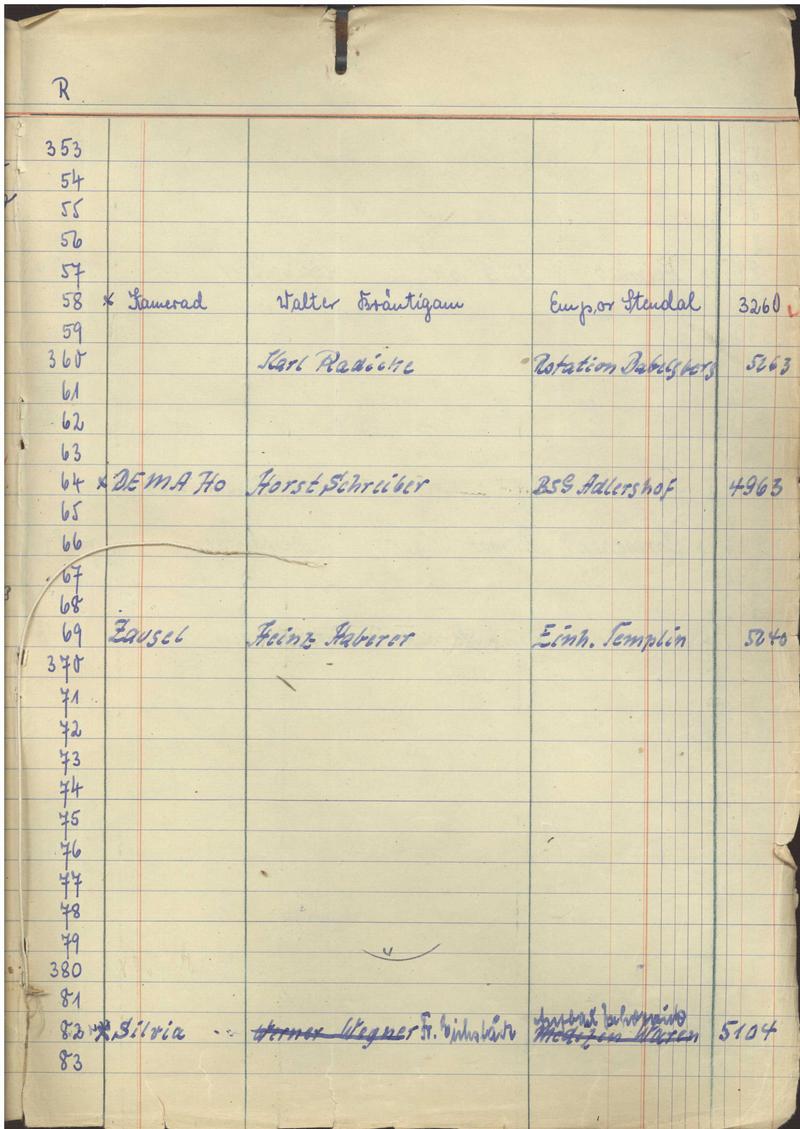 R
353
54
55
56
57
58 x Kamerad Walter Bräutigam Empor Stendal 3260
59
360 Karl Radicke Rotation Dabelsberg 5263
61
62
63
64 x DEMA Ho Horst Schreiber BSG Adlershof 4963
65
66
67
68
69 Zausel Heinz Haberer Einh. Templin 5240
370
71
72
73
74
75
76
77
78
79
380
81
82 x Silvia Werner Wegner Fr. Medizin Waren 5104
83